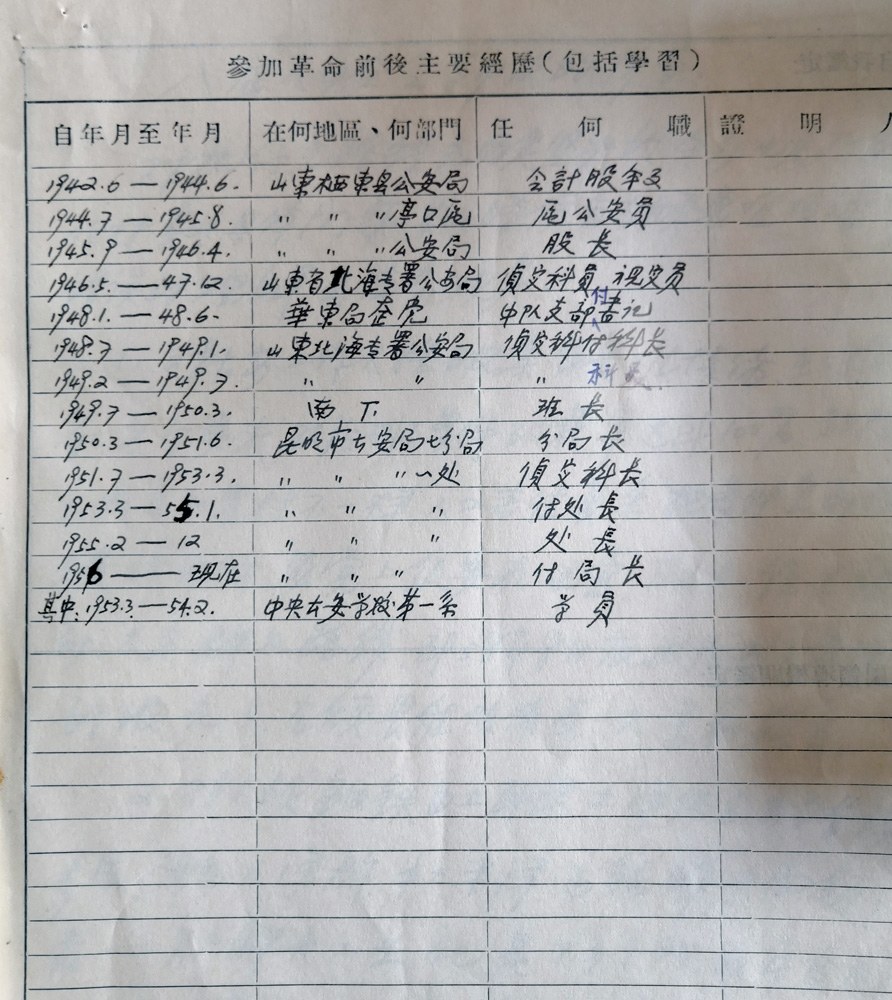 參加革命前後主要經歷(包括學習)
自年月至年月 在何地區、何部門 任何職 證明人
1942.6 — 1944.6. 山東栖東县公安局 会計股年
1944.7 — 1945.8. 〃 〃 〃亭口区 区公安員
1945.9 — 1946.4. 〃 〃 〃公安局 股長
1946.5. — 47.12 山東省北海专署公安局 偵察科員 視察員
1948.1. — 48.6. 華東局党 中队支部付書记
1948.7 — 1949.1. 山東北海专署公安局 偵察科付科長
1949.2 — 1949.7. 〃 〃 〃 科長
1949.7 — 1950.3. 南下 班長
1950.3 — 1951.6. 昆明市公安局七分局 分局長
1951.7 — 1953.3. 〃 〃 〃一处 偵察科長
1953.3 — 55.1. 〃 〃 〃 付处長
1955.2 — 12 〃 〃 〃 处長
1956 — 現在 〃 〃 〃 付局長
其中:1953.3 — 54.2. 中央公安学校第一系 学員